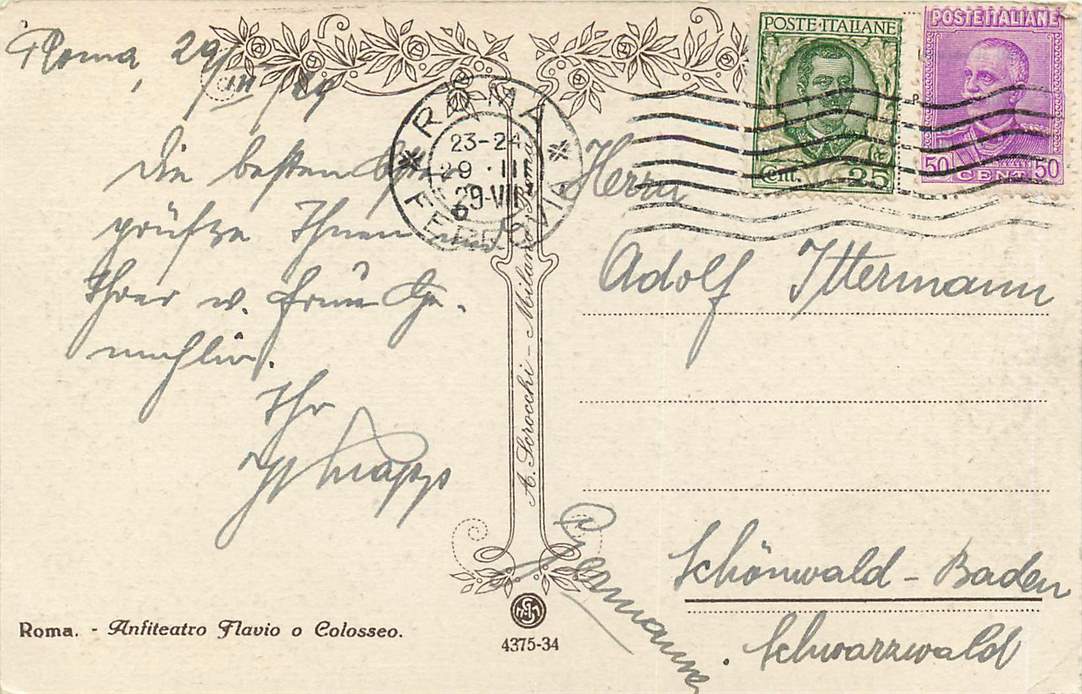 Roma, 29/III 29
Die besten
grüße Ihnen und
Ihrer w. Frau Ge-
mahlin.
Ihr
ROMA
23-24
29 · III
29-VII
FERROVIA
POSTE·ITALIANE
Cent. 25
POSTE ITALIANE
50 CENT. 50
Herrn
Adolf Ittermann
Schönwald - Baden
Schwarzwald
Germania
A. Scrocchi - Milano-Roma
Roma. - Anfiteatro Flavio o Colosseo.
4375-34